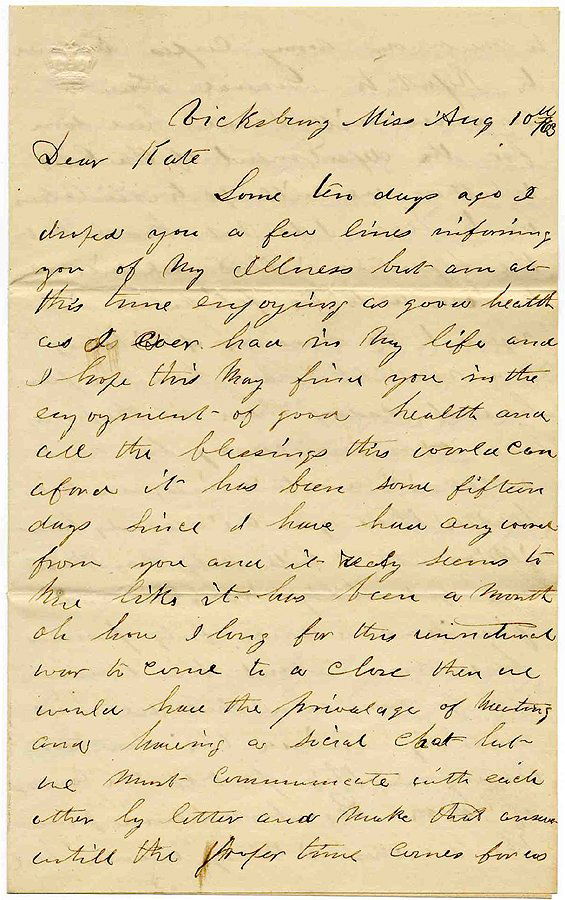 Vicksburg Miss Aug 10th /63
Dear Kate
Some two days ago I
droped you a few lines informing
you of my Illness but am at
this time enjoying as good health
as I ever had in my life and
I hope this May find you in the
enjoyment of good health and
all the blessings this world can
aford it has been some fifteen
days since I have had any word
from you and it realy seems to
Me like it has been a Month
oh how I long for this unnatural
war to come to a close then we
would have the privalage of Meeting
and having a social chat but
we must communicate with each
other by letter and Make that answer
untill the proper time comes for us